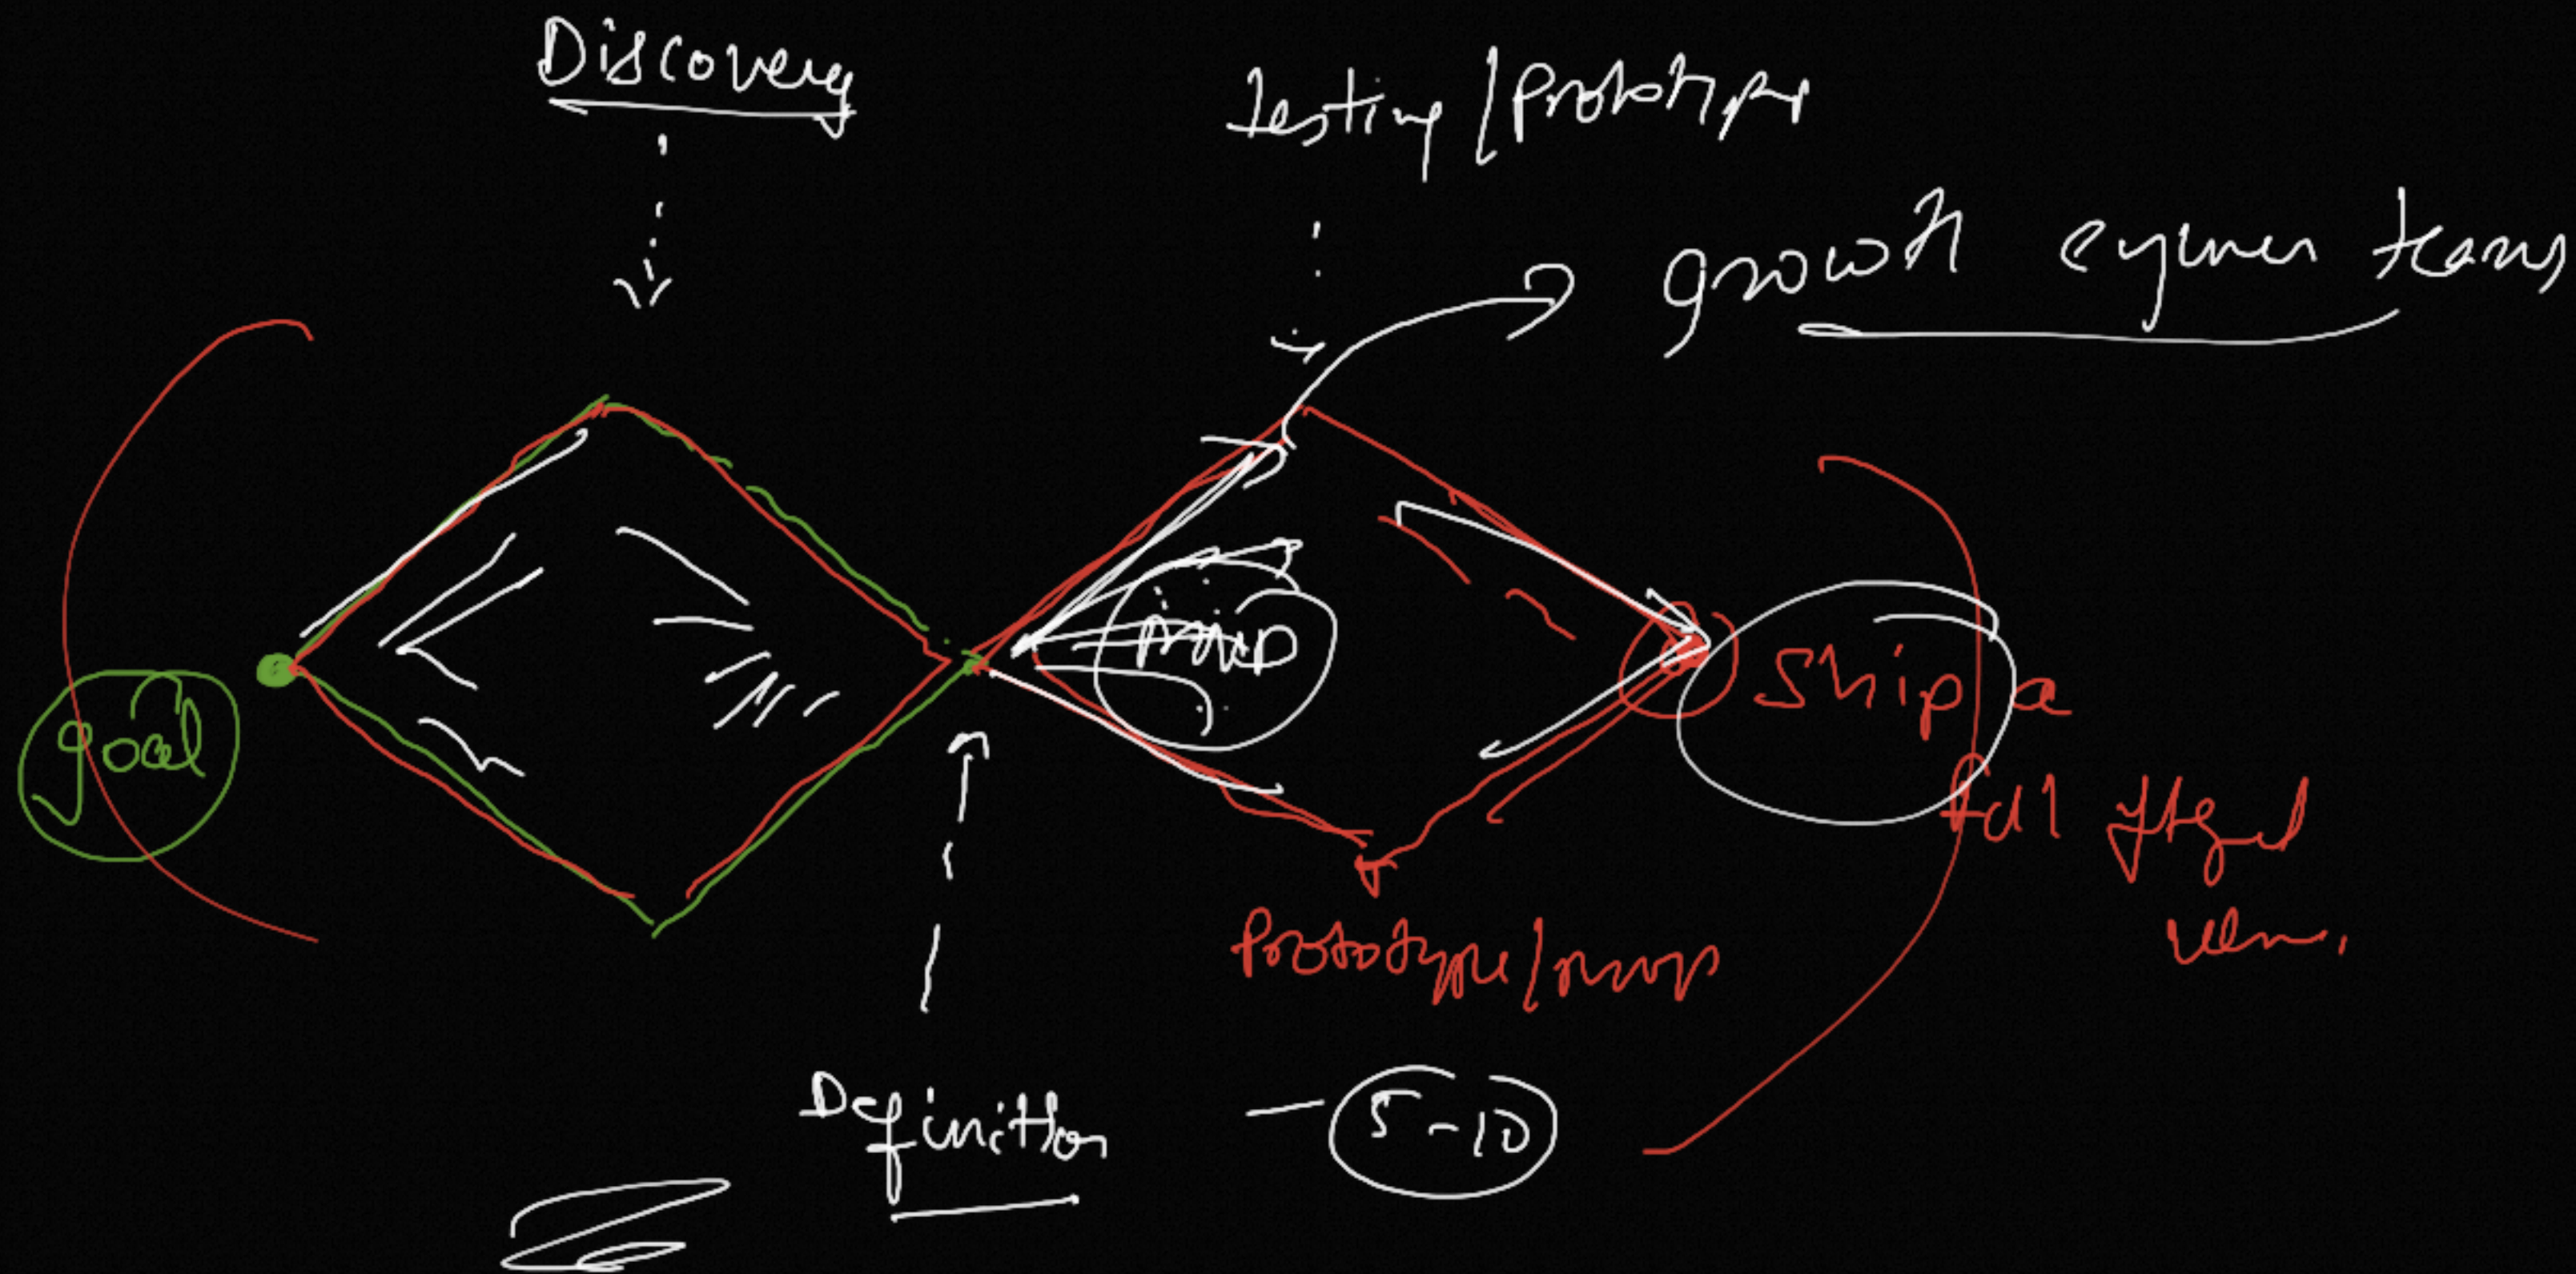 Discovery
testing/prototype
growth teams
goal
MVP
Ship a
Prototype/mvp
Definition - 5-10